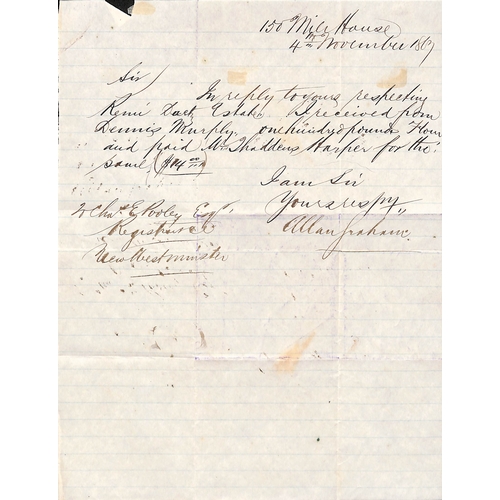 150 Mile House
4th November 1869
Sir
In reply to yours respecting
Remi Estate. I received from
Dennis Murphy, one hundred pounds Flour
and paid Mr Thaddeus Harper for the
same,
I am Sir
Yours respy
Allan Graham.
To Chas E Pooley Esqr
Registrar
New Westminster